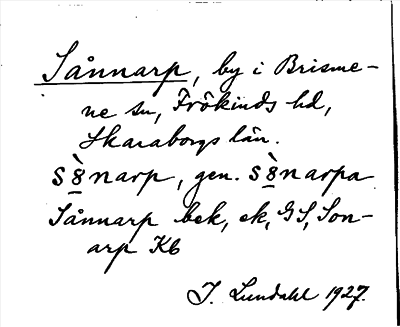 Sånnarp, by i Brisme-
ne sn, Frökinds hd,
Skaraborgs län.
sȣ̀narp, gen. sȣ̀narpa
Sånnarp bek, ek, GS, Son-
arp Kb
I. Lundahl 1927.